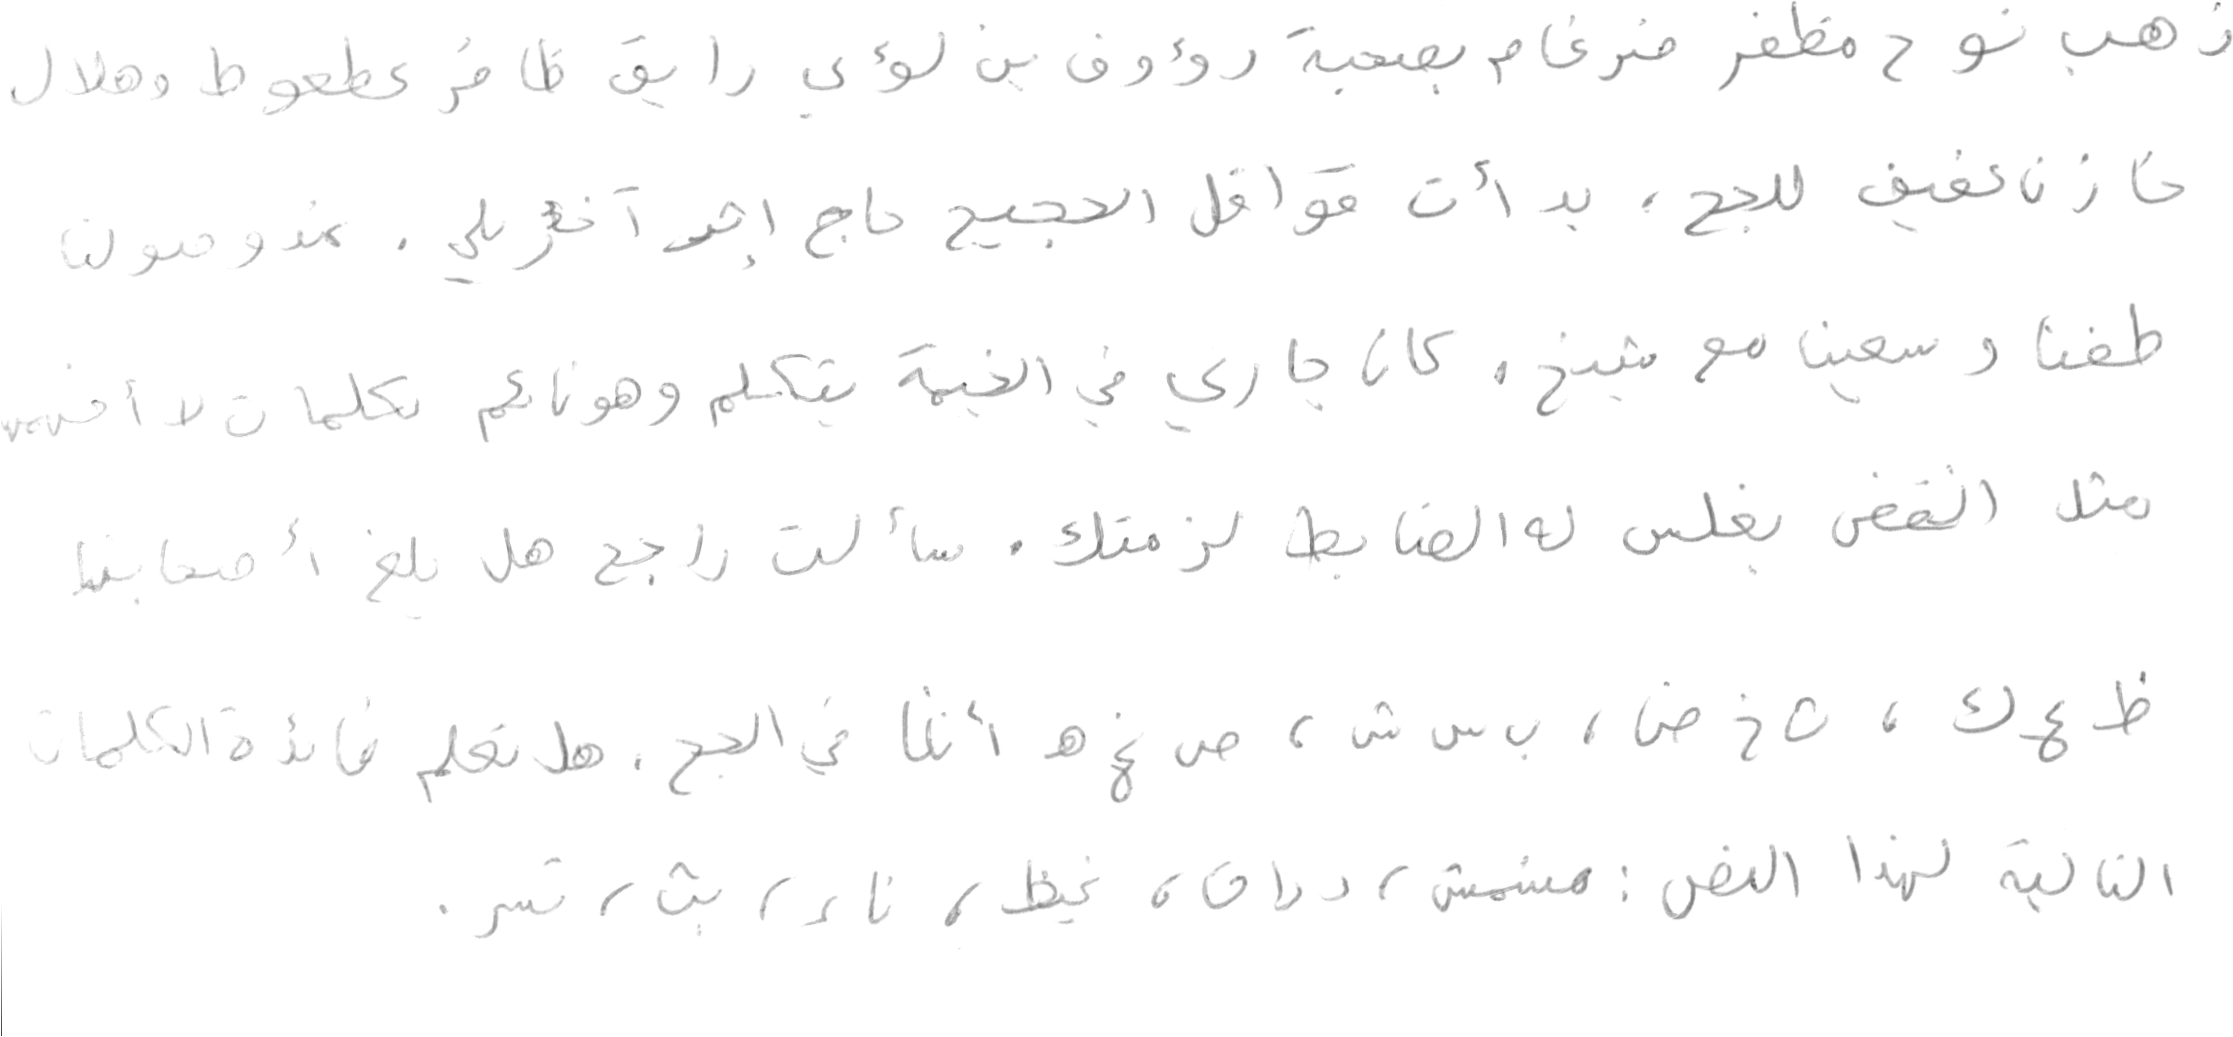 ذهب نوح مظفر ضرغام بصحبة رؤوف بن لؤي رايق ظافر عطعوط وهلال
خازنا عفيف للحج ، بدأت قوافل الحجيج حاج إثر آخر بلي . عند وصولنا
طفنا وسعينا مع شيخ . كان جاري في الخيمة يتكلم وهو نائم بكلمات لا أفهمها
مثل النقض بغلس له الضابط لزمتك . سألت راجح هل بلغ أصحابنا
ظ ع ك ، ث خ ض ، ب س ش ، ص غ ه أننا في الحج . هل تعلم فائدة الكلمات
التالية لهذا النص : مشمش ، دراق ، غيظ ، ناء ، بث ، تسر .